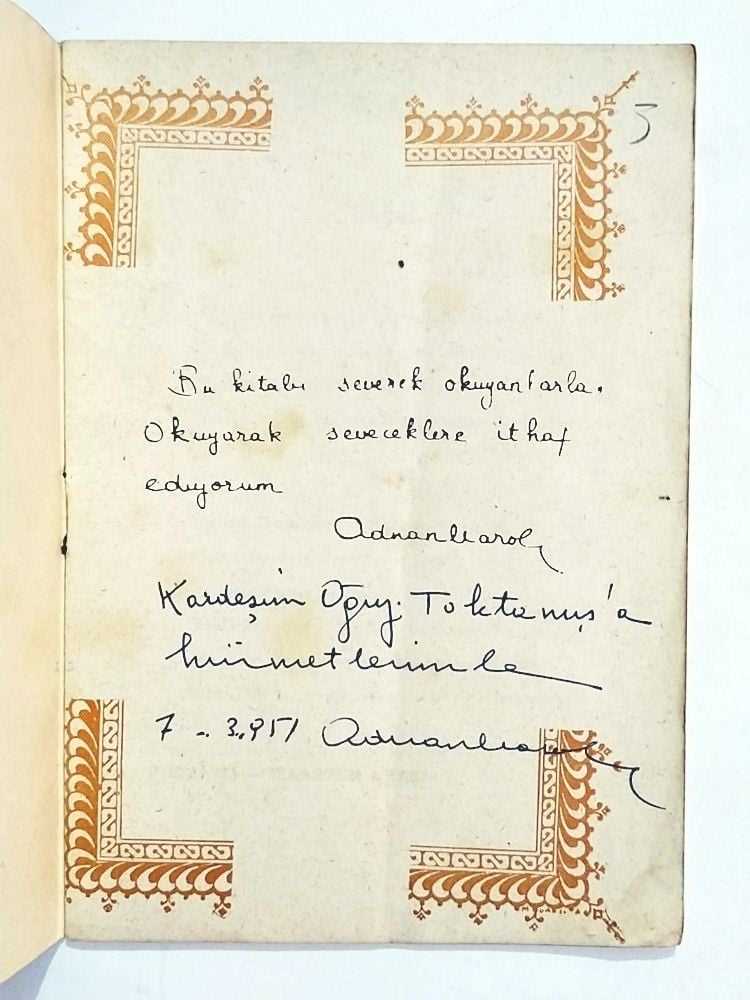 3
Bu kitabı severek okuyanlarla.
Okuyarak seveceklere ithaf
ediyorum
Adnan
Kardeşim Oğuz Toktamış'a
hürmetlerimle
7 - 3.951 Adnan